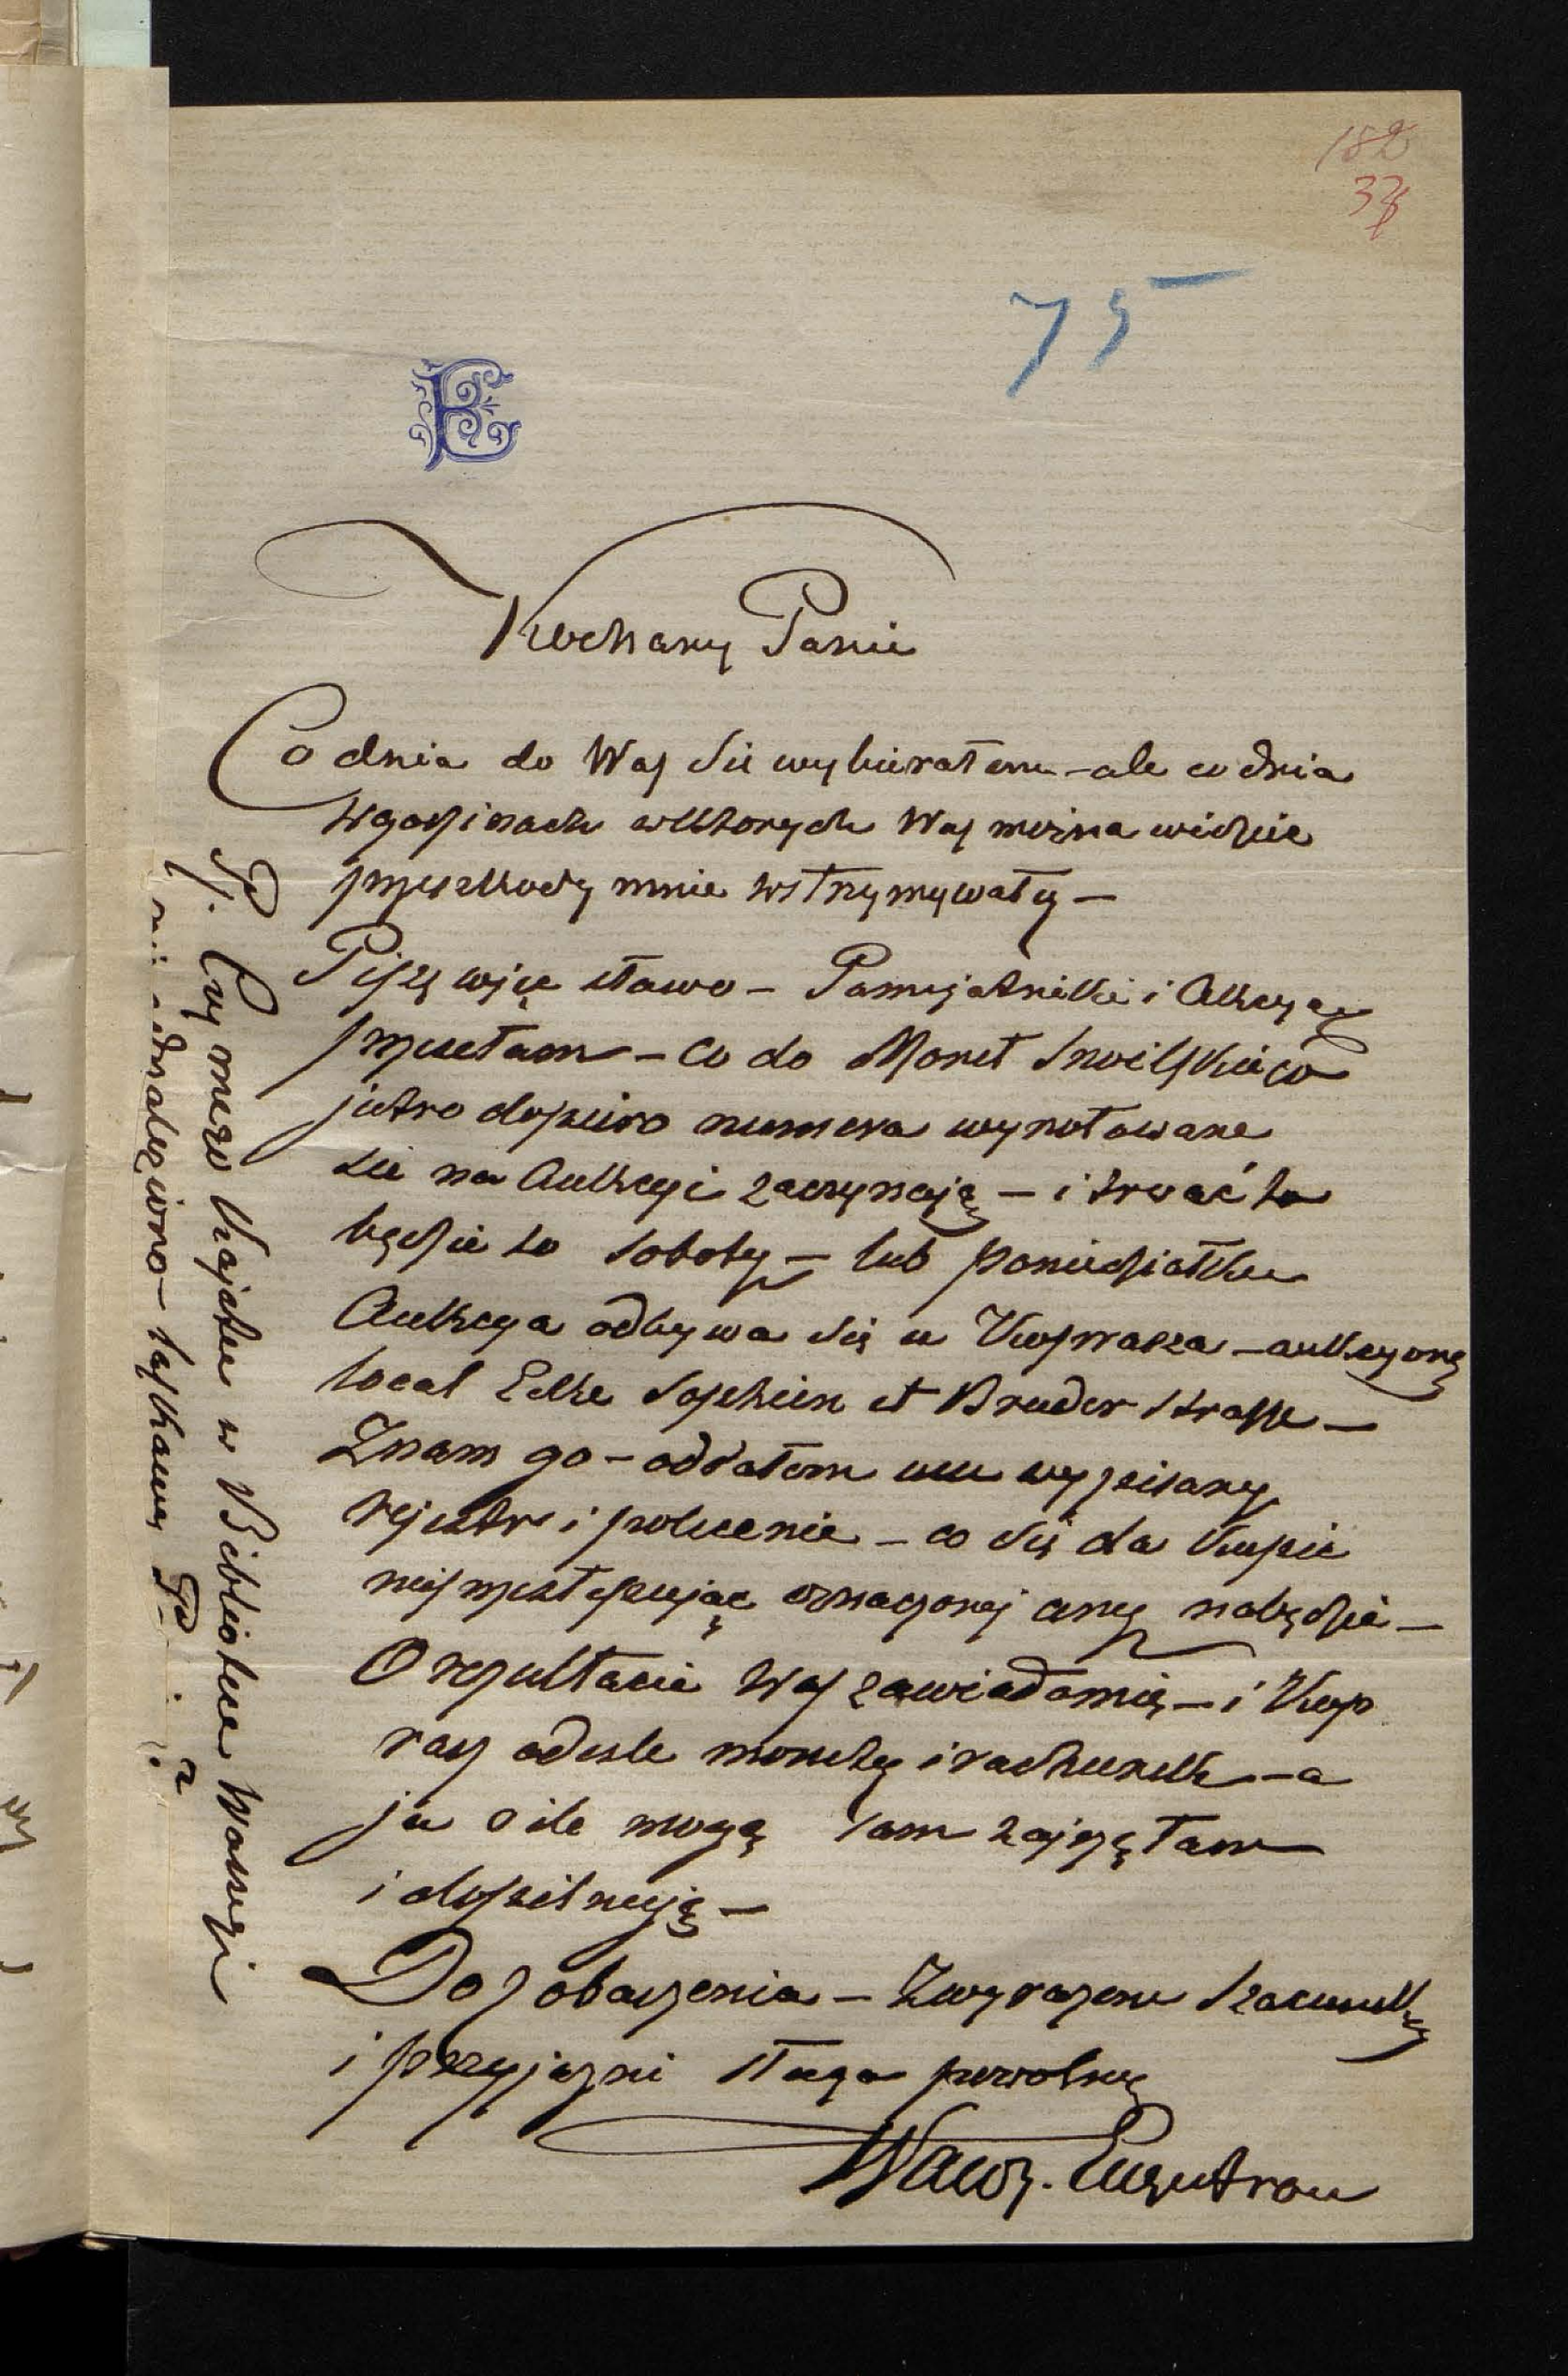 182
37
75
Kochany Panie
Co dnia do Was sie wybierałem – ale co dnia
w godzinach w których Was można widzieć
przeszkody mnie wstrzymywały –
Piszę więc słowo – Pamiętniki i Akcyą
przesełam – co do Monet
jutro dopiero numera wynotowane
sie na Aukcyi zaczynają – i trwać to
będzie do soboty – lub poniedziałku
Aukcya odbywa się u – aukcyons
local Ecke Sophien et Bruder Strasse –
Znam go – oddałem mu wypisany
rejestr i polecenie – co się da kupić
nieprzestępując oznaczonej ceny nabędzie –
O rezultacie Was zawiadomię – i
odesle monety i rachunek – a
ja o ile mogę sam zajrzę tam
i dopilnuję –
Do zobaczenia – Z wyrazem szacunku
i przyjazni sługa powolny
Wawrz. Engestrom
Ps. Czy mego kajetu w Bibliotece Waszej
nie odnaleziono – łaskawy